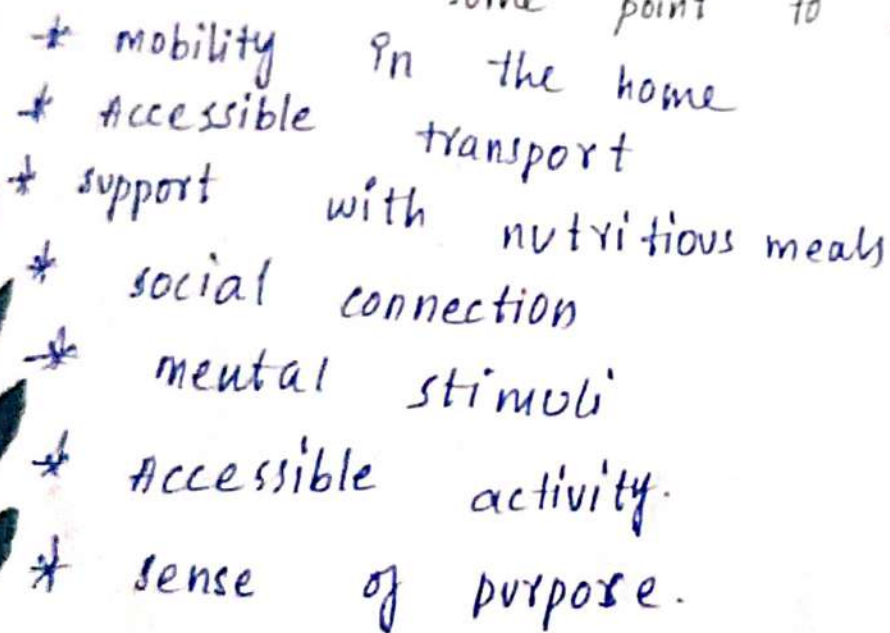 some point to
* mobility in the home
* Accessible transport
* support with nutritious meals
* social connection
* mental stimuli
* Accessible activity.
* sense of purpose.